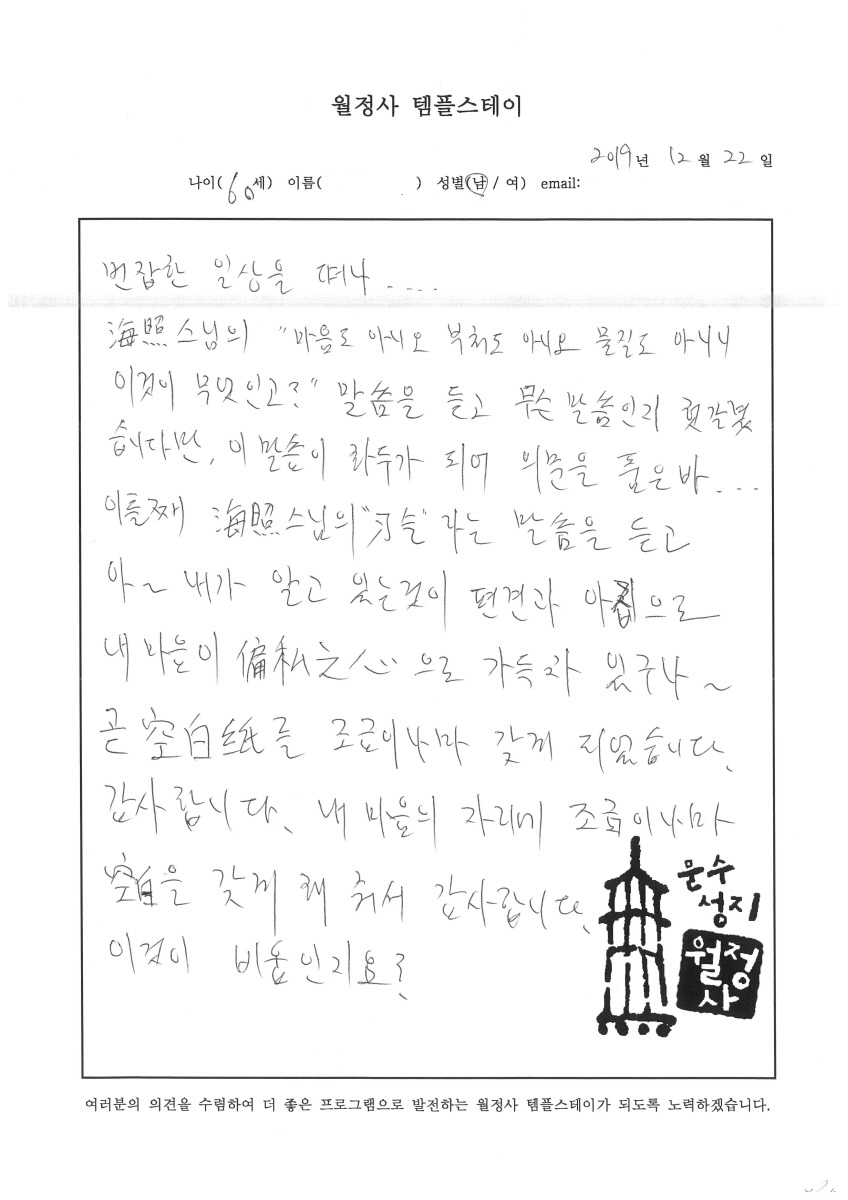 월정사 템플스테이
2019년 12월 22일
나이(60세) 이름( ) 성별(남/여) email:
번잡한 일상을 떠나....
海照스님의 "마음도 아니오 부처도 아니요 물질도 아니니
이것이 무엇인고?" 말씀을 듣고 무슨 말씀인지 헷갈렸
습니다만, 이 말씀이 화두가 되어 의문을 품은바...
이틀째 海照스님의 "刃슬"라는 말씀을 듣고
아~ 내가 알고 있는것이 편견과 아집으로
내 마음이 偏私之心으로 가득차 있구나~
곧 空白紙를 조금이나마 갖게 되었습니다.
감사합니다. 내 마음의 자리에 조금이나마
空白을 갖게 해 줘서 감사합니다.
이것이 비움인지요?
문수
성지
월정
사
여러분의 의견을 수렴하여 더 좋은 프로그램으로 발전하는 월정사 템플스테이가 되도록 노력하겠습니다.